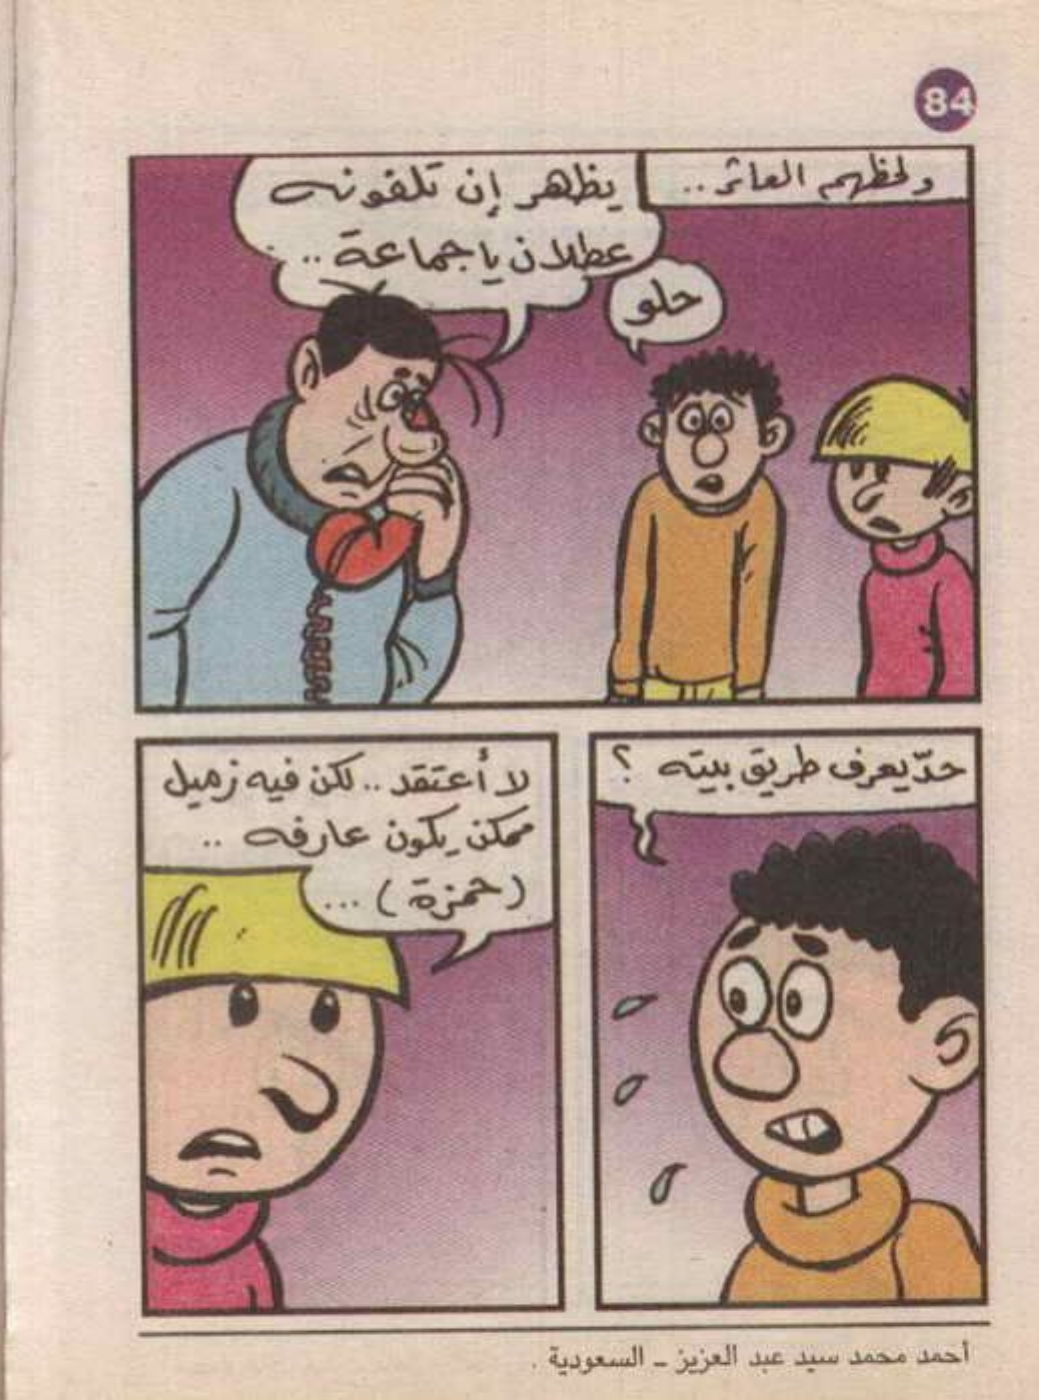 84
ولحظهم العاثر ..
يظهر إن تلفونه
عطلان يا جماعة ..
حلو
حدّ يعرف طريق بيته ؟
لا أعتقد .. لكن فيه زميل
ممكن يكون عارفه ..
(حمزة) ...
أحمد محمد سيد عبد العزيز - السعودية .